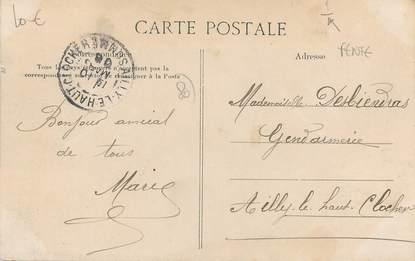 10€
CARTE POSTALE
Correspondance
Tous les pays étrangers n'acceptent pas la
correspondance au recto (se renseigner à la Poste)
Adresse
FENTE
AILLY-LE-HAUT-CLOCHER
80
Bonjour amical
de tous
Marie
Mademoiselle
Gendarmerie
Ailly-le-haut-Clocher